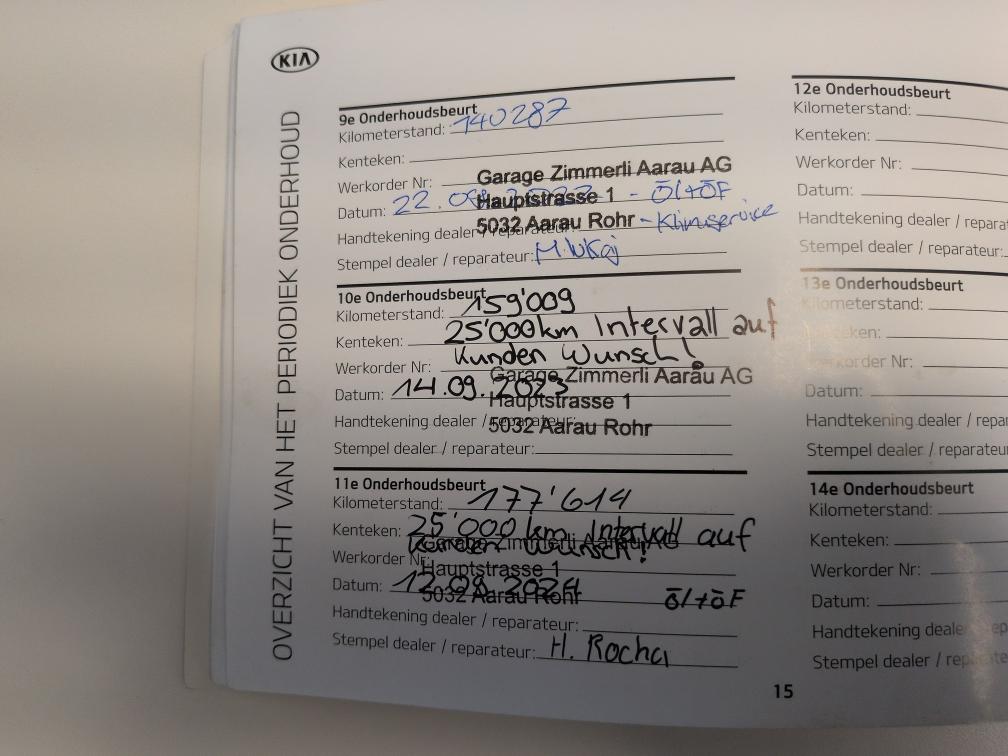 KIA
OVERZICHT VAN HET PERIODIEK ONDERHOUD
9e Onderhoudsbeurt
Kilometerstand: 140287
Kenteken:
Werkorder Nr: Garage Zimmerli Aarau AG
Datum: 22. Hauptstrasse 1 - Ōl+ŌF
Handtekening dealer / reparateur: 5032 Aarau Rohr - Klimaservice
Stempel dealer / reparateur:
10e Onderhoudsbeurt
Kilometerstand: 159'009
Kenteken: 25'000km Intervall auf
Werkorder Nr: Kunden Wunsch!
Garage Zimmerli Aarau AG
Datum: 14.09.2023
Hauptstrasse 1
Handtekening dealer / reparateur:
5032 Aarau Rohr
Stempel dealer / reparateur:
11e Onderhoudsbeurt
Kilometerstand: 177'614
Kenteken: 25'000 km Intervall auf
Kunden Wunsch!
Garage Zimmerli Aarau AG
Werkorder Nr:
Hauptstrasse 1
Datum: 12.09.2024 Ōl+ŌF
5032 Aarau Rohr
Handtekening dealer / reparateur:
Stempel dealer / reparateur: H. Rocha
12e Onderhoudsbeurt
Kilometerstand:
Kenteken:
Werkorder Nr:
Datum:
Handtekening dealer / repara
Stempel dealer / reparateur:
13e Onderhoudsbeurt
Kilometerstand:
Kenteken:
Werkorder Nr:
Datum:
Handtekening dealer / repar
Stempel dealer / reparateu
14e Onderhoudsbeurt
Kilometerstand:
Kenteken:
Werkorder Nr:
Datum:
Handtekening dealer / rep
Stempel dealer / reparate
15